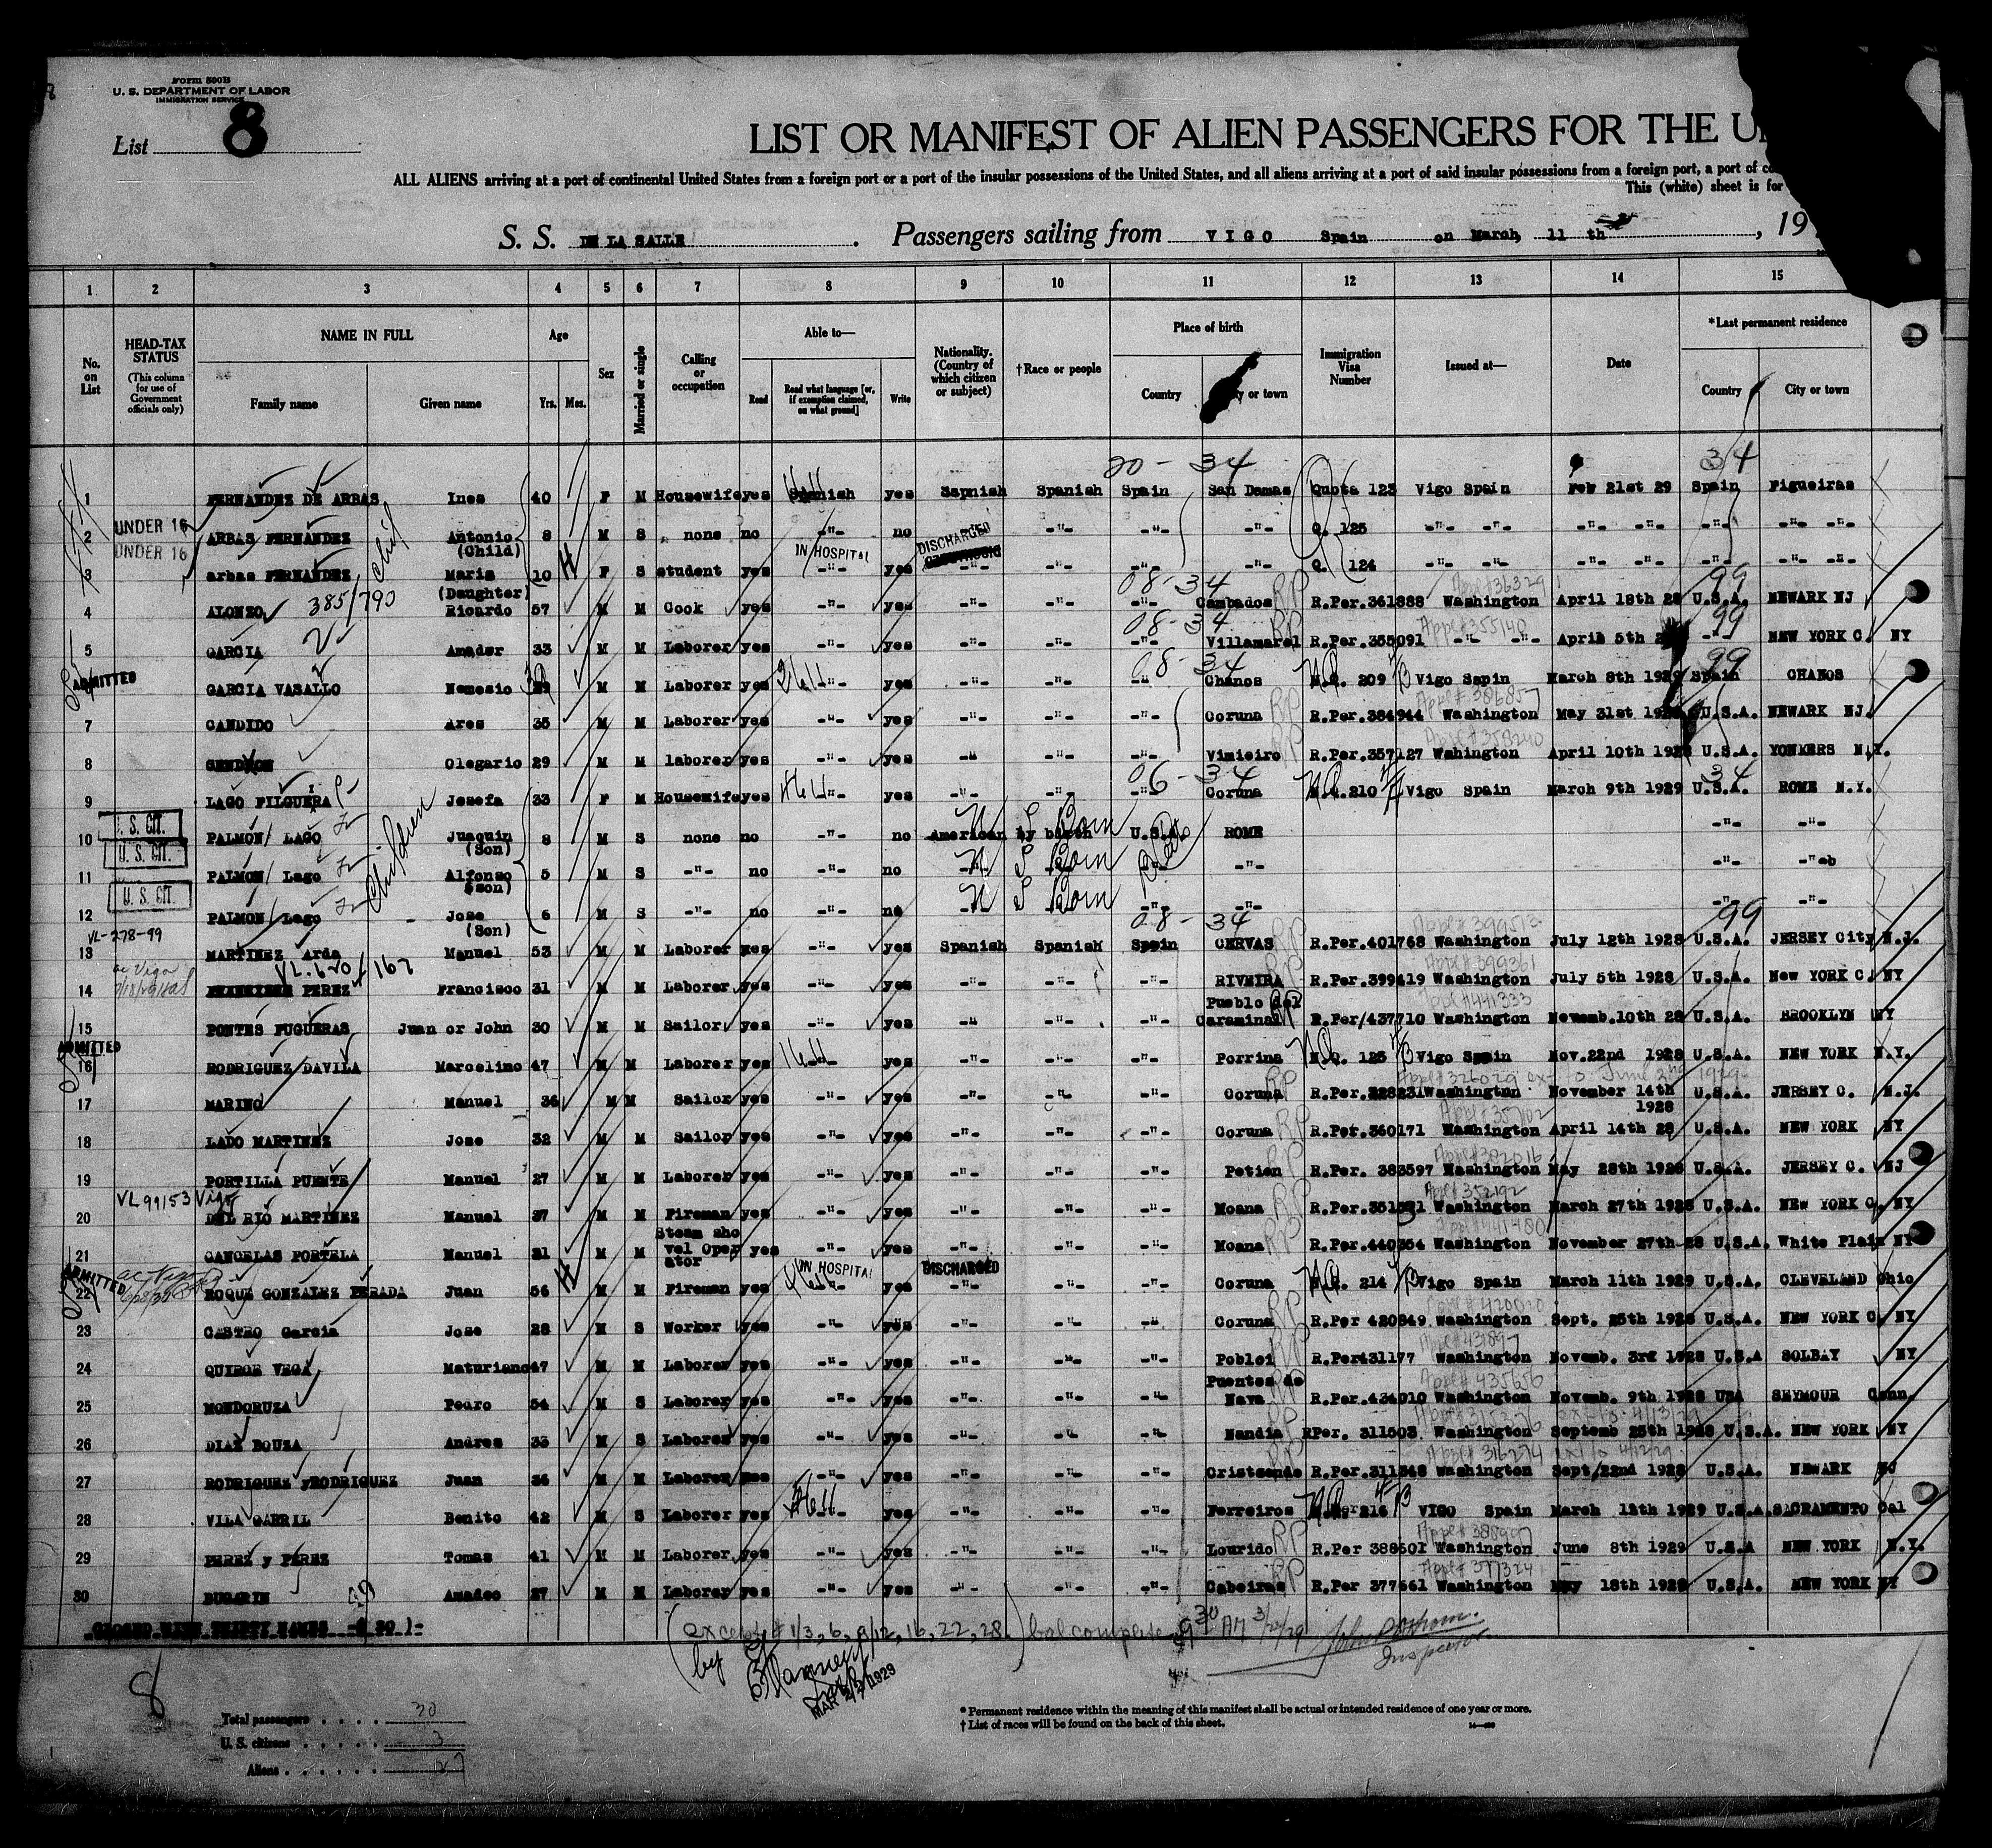 Form 500B
U. S. DEPARTMENT OF LABOR
IMMIGRATION SERVICE
List 8
LIST OR MANIFEST OF ALIEN PASSENGERS FOR THE U
ALL ALIENS arriving at a port of continental United States from a foreign port or a port of the insular possessions of the United States, and all aliens arriving at a port of said insular possessions from a foreign port, a port of
This (white) sheet is for
S. S. DE LA SALLE . Passengers sailing from VIGO Spain on March, 11 th , 19
1 2 3 4 5 6 7 8 9 10 11 12 13 14 15
No. on List
HEAD-TAX STATUS (This column for use of Government officials only)
NAME IN FULL Family name Given name
Age Yrs. Mos.
Sex
Married or single
Calling or occupation
Able to— Read Read what language [or, if exemption claimed, on what ground] Write
Nationality. (Country of which citizen or subject)
†Race or people
Place of birth Country or town
Immigration Visa Number
Issued at—
Date
*Last permanent residence Country City or town
20 - 34 34
1 FERNANDEZ DE ARBAS Ines 40 F M Housewife yes Spanish yes Sapnish Spanish Spain San Damas Quota 123 Vigo Spain Feb 21st 29 Spain Figueiras
2 UNDER 16 ARBAS FERNANDEZ Antonio (Child) 8 M S none no -"- no DISCHARGED -"- -"- -"- Q. 125 -"- -"- -"- -"- -"- -"- -"-
3 UNDER 16 arbas FERNANDEZ Maria (Daughter) 10 F S student yes IN HOSPITAL -"- yes -"- -"- -"- -"- Q. 124 -"- -"- -"- -"- -"- -"- -"-
08 - 34 99
4 ALONZO 385/790 Ricardo 57 M M Cook yes -"- yes -"- -"- -"- Cambados RP R.Per.361888 Washington April 18th 28 U.S.A. NEWARK NJ
08 - 34 Appl# 355140 99
5 GARCIA Amador 33 M M Laborer yes -"- yes -"- -"- -"- Villamarel R.Per.355091 -"- -"- April 5th -"- NEW YORK C. NY
08 - 34 99
ADMITTED GARCIA VASALLO Nemesio M M Laborer yes -"- yes -"- -"- -"- Chanos N.Q. 209 Vigo Sapin March 8th 1929 Spain CHANOS
7 CANDIDO Ares 35 M M Laborer yes -"- yes -"- -"- -"- Coruna RP R.Per.384944 Washington May 31st U.S.A. NEWARK NJ.
8 Olegario 29 M M laborer yes -"- yes -"- -"- -"- Vimieiro RP R.Per.357127 Wahington April 10th 1928 U.S.A. YONKERS N.Y.
06 - 34 34
9 LAGO FILGUERA Josefa 33 F M Housewife yes -"- yes -"- -"- -"- Coruna N.Q.210 Vigo Spain March 9th 1929 U.S.A. ROME N.Y.
10 U. S. CIT. PALMON/ LAGO Juaquin (Son) 8 M S none no -"- no American by birth U S Born U.S.A. ROME -"- -"-
11 U. S. CIT. PALMON/ Lago Alfonso (son) 5 M S -"- no -"- no U S Born -"- -"- -"-
12 U. S. CIT. PALMON/ Lago Children Jose (Son) 6 M S -"- no -"- no U S Born -"- -"- -"-
08 - 34 99
VL-278-99
13 MARTINEZ Arda Manuel 53 M M Laborer yes -"- yes Spanish Spanish Spain CERVAS RP R.Per.401768 Washington July 12th 1928 U.S.A. JERSEY City N.J.
14 PEREZ Francisco 31 M M Laborer yes -"- yes -"- -"- -"- RIVEIRA RP R.Per.399419 Washington July 5th 1928 U.S.A. New YORK C. NY
15 PONTES FUGUERAS Juan or John 30 M M Sailor yes -"- yes -"- -"- -"- Pueblo del Caraminal R.Per/437710 Washington Novemb.10th 28 U.S.A. BROOKLYN NY
ADMITTED
16 RODRIGUEZ DAVILA Marcelino 47 M M Laborer yes -"- yes -"- -"- -"- Porrina N.Q. 125 Vigo Spain Nov.22nd 1928 U.S.A. NEW YORK N.Y.
Appl# 326029 ext to June 2nd 1929
17 MARINO Manuel 36 M M Sailor yes -"- yes -"- -"- -"- Coruna RP R.Per.328231 Washington November 14th 1928 U.S.A. JERSEY C. N.J.
18 LADO MARTINEZ Jose 32 M M Sailor yes -"- yes -"- -"- -"- Coruna RP R.Per.360171 Washington April 14th 28 U.S.A. NEW YORK NY
19 PORTILLA PUENTE Manuel 27 M M Laborer yes -"- yes -"- -"- -"- Petien RP R.Per. 383597 Washington May 28th 1928 U.S.A. JERSEY C. NJ
VL 99153 Vigo
20 DEL RIO MARTINEZ Manuel 37 M M Fireman yes -"- yes -"- -"- -"- Moana RP Washington March 27th 1928 U.S.A. NEW YORK C. NY
21 CANCELAS PORTELA Manuel 31 M M Steam sho vel Oper ator yes -"- yes -"- -"- -"- Moana RP R.Per.440354 Washington November 27th 28 U.S.A. White Plain NY
ADMITTED IN HOSPITAL DISCHARGED
22 ROQUE GONZALEZ PERADA Juan 56 M M Fireman yes -"- yes -"- -"- -"- Coruna N.Q. 214 Vigo Spain March 11th 1929 U.S.A. CLEVELAND Ohio
23 CASTRO Garcia Jose 28 M S Worker yes -"- yes -"- -"- -"- Coruna RP R.Per 420849 Washington Sept. 25th 1928 U.S.A. NEW YORK C. NY
24 QUIROE VEGA Maturiano 47 M M Laborer yes -"- yes -"- -"- -"- Poblei RP R.Per431177 Washington Novemb. 3rd 1928 U.S.A SOLBAY NY
25 MONDORUZA Pedro 54 M S Laborer yes -"- yes -"- -"- -"- Puentes de Nava R.Per.434010 Washington Novemb. 9th 1928 USA SEYMOUR Conn.
26 DIAZ BOUZA Andres 33 M S Laborer yes -"- yes -"- -"- -"- Nandia RP RPer. 311503 Washington Septemb 25th 1928 U.S.A. NEW YORK NY
27 RODRIGUEZ yRODRIGUEZ Juan 36 M M Laborer yes -"- yes -"- -"- -"- Cristsende R.Per.311348 Washington Sept/22nd 1928 U.S.A. NEWARK NJ
28 VILA GARRIL Benito 42 M S Laborer yes -"- yes -"- -"- -"- Ferreiros VIGO Spain March 12th 1929 U.S.A. SACRAMENTO Cal
29 PEREZ y PEREZ Tomas 41 M M Laborer yes -"- yes -"- -"- -"- Lourido RP R.Per 388501 Washington June 8th 1929 U.S.A NEW YORK N.Y.
30 BUGARIN Amadeo 27 M M Laborer yes -"- yes -"- -"- -"- Cabeiras RP R.Per 377661 Washington May 18th 1928 U.S.A. NEW YORK NY
CLOSED WITH THIRTY NAMES -( 30 )-
(except # 1/3, 6, 9/12, 16, 22, 28.) bal complete 9 30 AM 3/21/29
by
Inspector.
8
MAR 1929
Total passengers . . . . 30
U. S. citizens . . . . . 3
Aliens . . . . . . 27
* Permanent residence within the meaning of this manifest shall be actual or intended residence of one year or more.
† List of races will be found on the back of this sheet.